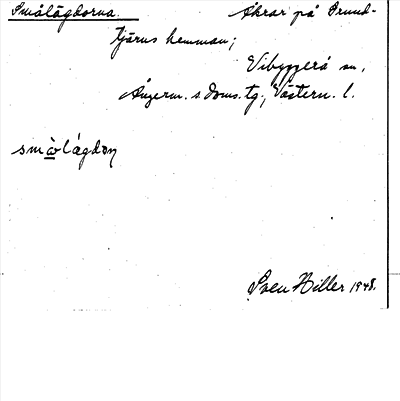 Smålägdorna. Åkrar på Prund-
tjärns hemman;
Vibyggerå sn,
Ångerm. s. doms. tg; Västern. l.
smålägdoṇ
Sven Hiller 1948.